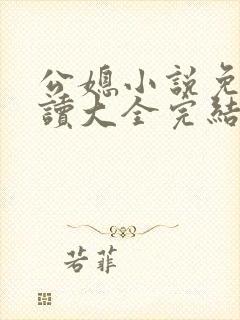 公媳小說免
讀大全完結
若菲